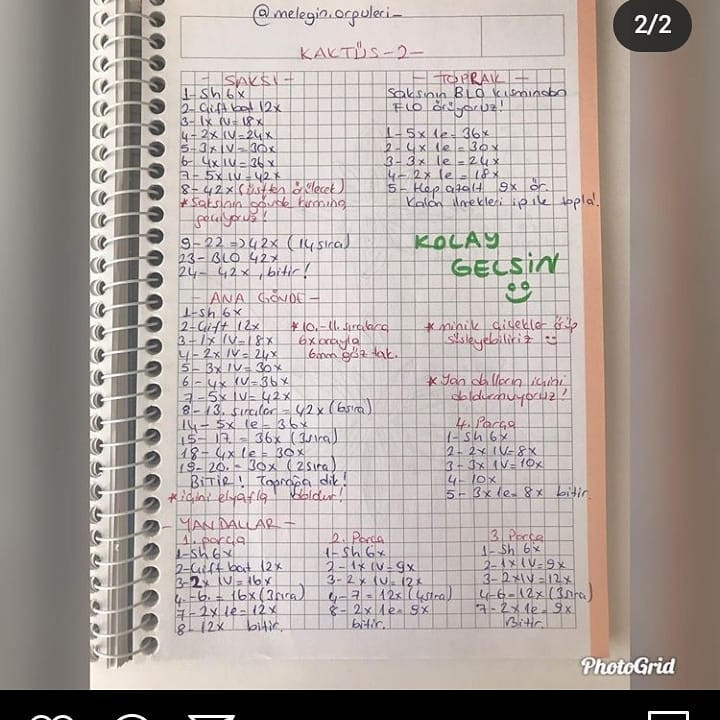 @melegin.orguleri_
2/2
KAKTÜS-2-
- SAKSI -
1-Sh 6x
2-Çift bat 12x
3-1x IV=18x
4-2x IV=24x
5-3x IV=30x
6-4x IV=36x
7-5x IV=42x
8-42x (üstten örülecek)
*Saksının gövde kısmına
geçiyoruz!
9-22=>42x (14 sıra)
23- BLO 42x
24- 42x, bitir!
- TOPRAK -
Saksının BLO kısmından
FLO örüyoruz!
1-5x 1e=36x
2-4x 1e=30x
3-3x 1e=24x
4-2x 1e=18x
5-Hep azalt 9x ör.
Kalan ilmekleri ip ile topla!
KOLAY
GELSİN
- ANA GÖVDE -
1-Sh 6x
2-Çift 12x
3-1x IV=18x
4-2x IV=24x
5-3x IV=30x
6-4x IV=36x
7-5x IV=42x
8-13. sıralar=42x (6sıra)
14-5x 1e=36x
15-17.=36x (3sıra)
18-4x 1e=30x
19-20.=30x (2sıra)
BİTİR! Toprağa dik!
*içini elyafla doldur!
*10.-11. sıralara
6x arayla
6mm göz tak.
*minik çiçekler örüp
süsleyebiliriz
*Yan dalların içini
doldurmuyoruz!
4. Parça
1-Sh 6x
2-2x IV=8x
3-3x IV=10x
4-10x
5-3x 1e=8x bitir.
- YAN DALLAR -
1. parça
1-Sh 6x
2-Çift bat 12x
3-2x IV=16x
4.-6.=16x (3sıra)
7-2x 1e=12x
8-12x bitir.
2. Parça
1-Sh 6x
2-1x IV=9x
3-2x IV=12x
4-7=12x (4sıra)
8-2x 1e=9x
bitir.
3. Parça
1-Sh 6x
2-1x IV=9x
3-2x IV=12x
4-6=12x (3sıra)
7-2x 1e=9x
Bitir.
PhotoGrid